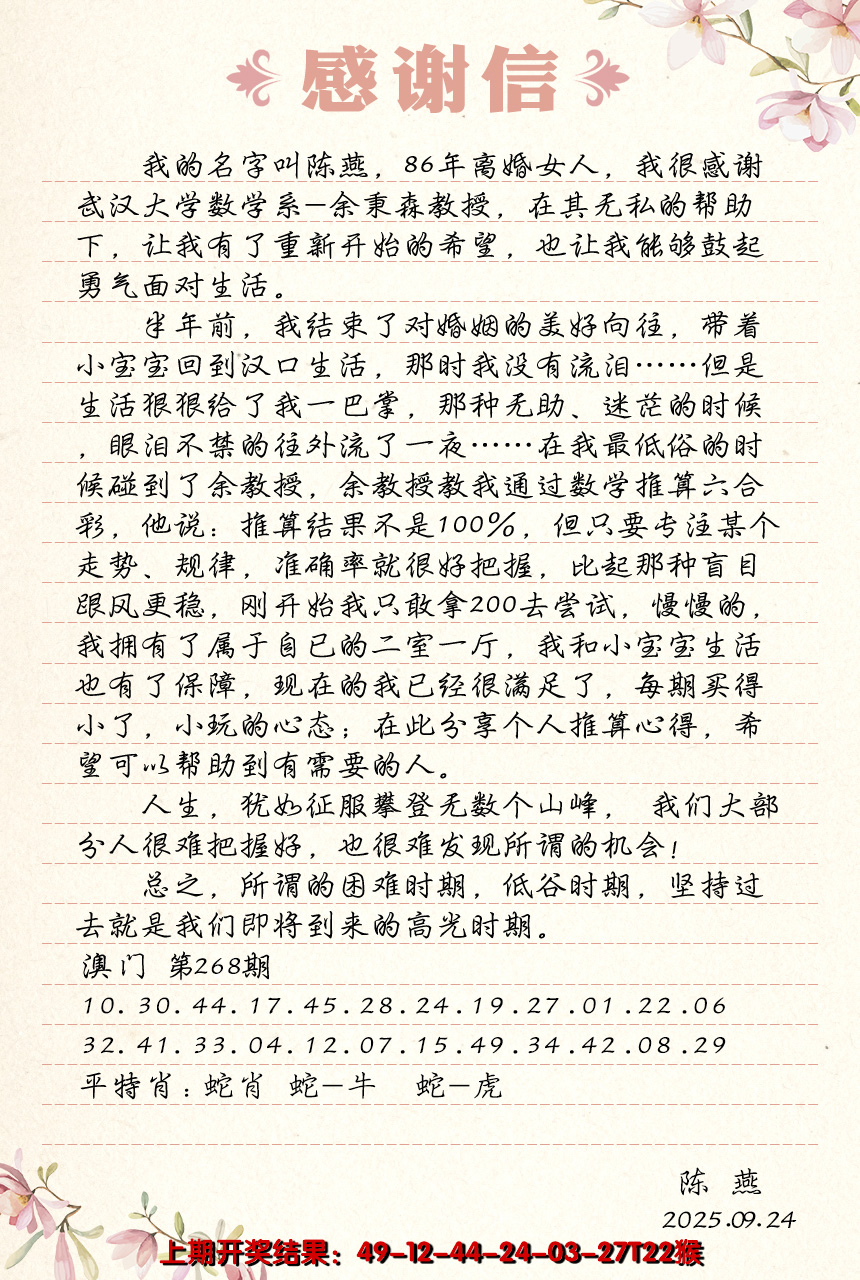 感谢信
我的名字叫陈燕，86年离婚女人，我很感谢
武汉大学数学系—余秉森教授，在其无私的帮助
下，让我有了重新开始的希望，也让我能够鼓起
勇气面对生活。
半年前，我结束了对婚姻的美好向往，带着
小宝宝回到汉口生活，那时我没有流泪……但是
生活狠狠给了我一巴掌，那种无助、迷茫的时候
，眼泪不禁的往外流了一夜……在我最低俗的时
候碰到了余教授，余教授教我通过数学推算六合
彩，他说：推算结果不是100%，但只要专注某个
走势、规律，准确率就很好把握，比起那种盲目
跟风更稳，刚开始我只敢拿200去尝试，慢慢的，
我拥有了属于自已的二室一厅，我和小宝宝生活
也有了保障，现在的我已经很满足了，每期买得
小了，小玩的心态；在此分享个人推算心得，希
望可以帮助到有需要的人。
人生，犹如征服攀登无数个山峰， 我们大部
分人很难把握好，也很难发现所谓的机会！
总之，所谓的困难时期，低谷时期，坚持过
去就是我们即将到来的高光时期。
澳门 第268期
10.30.44.17.45.28.24.19.27.01.22.06
32.41.33.04.12.07.15.49.34.42.08.29
平特肖：蛇肖 蛇—牛 蛇—虎
陈 燕
2025.09.24
上期开奖结果：49-12-44-24-03-27T22猴